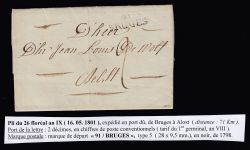 BRUGES
Dheer
Dhr Jean Louis DeWolf
Aelst
P8 du 26 floréal an IX ( 16. 05. 1801 ), expédié en port dû, de Bruges à Alost ( distance : 71 Km ).
Port de la lettre : 2 décimes, en chiffres de poste conventionnels ( tarif du 1er germinal, an VIII ).
Marque postale : marque de départ « 91 / BRUGES », type 5 ( 28 x 9,5 mm. ), en noir, de 1798.